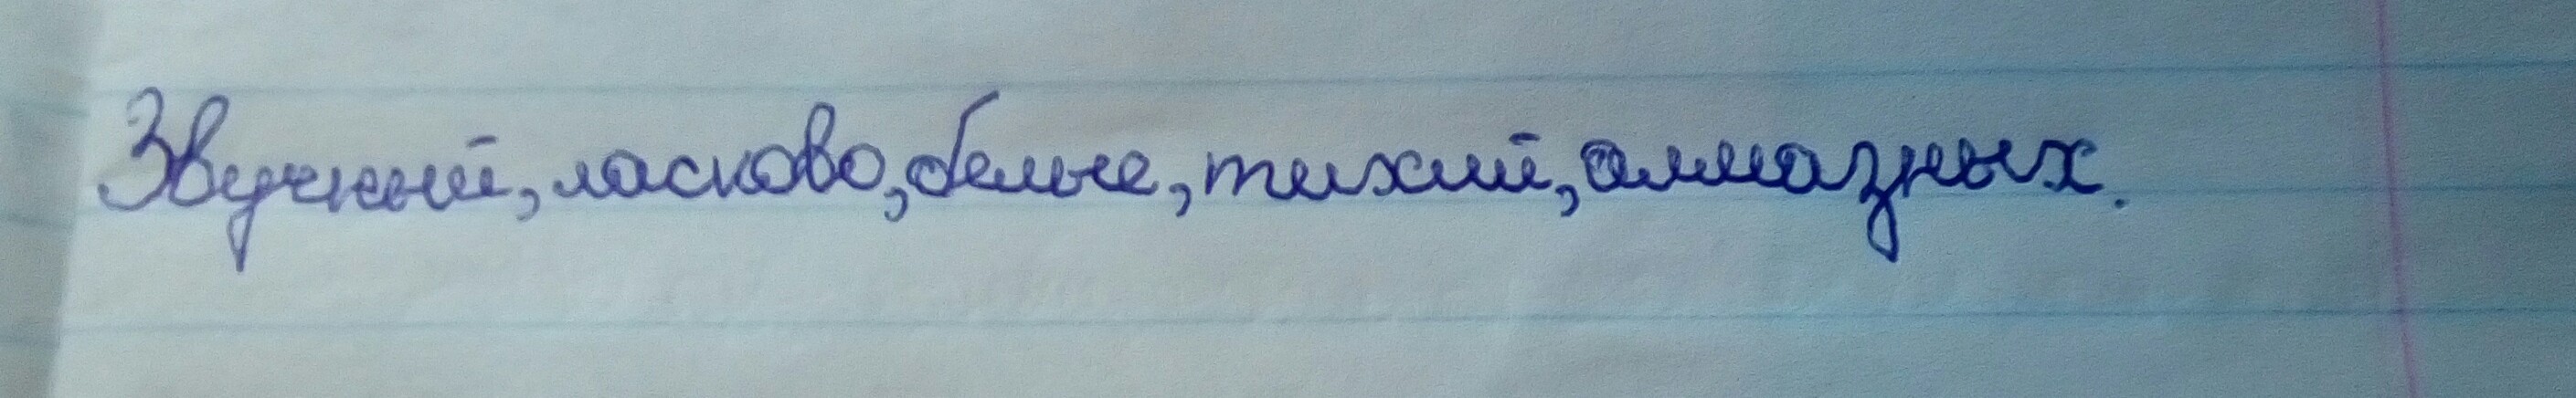 Звучный, ласково, белые, тихий, алмазных.